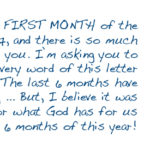 FIRST MONTH of the
7, and there is so much
you. I'm asking you to
very word of this letter
The last 6 months have
, ... But, I believe it was
or what God has for us
6 months of this year!